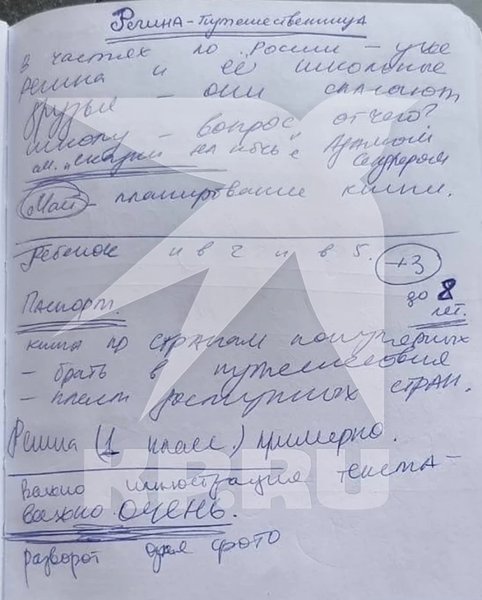 Регина - Путешественница
в частях по России - уже
Регина и её школьные
друзья - они спасают
школу - вопрос от чего?
Май - планирование книги.
Ребенок и в 2 и в 5. +3
Паспорт. до 8 лет.
книга по странам популярных
- брать в путешествия
- пласт доступных стран.
Регина (1 класс) примерно.
Важно иллюстрация текста -
важно ОЧЕНЬ.
разворот для фото
KP.RU